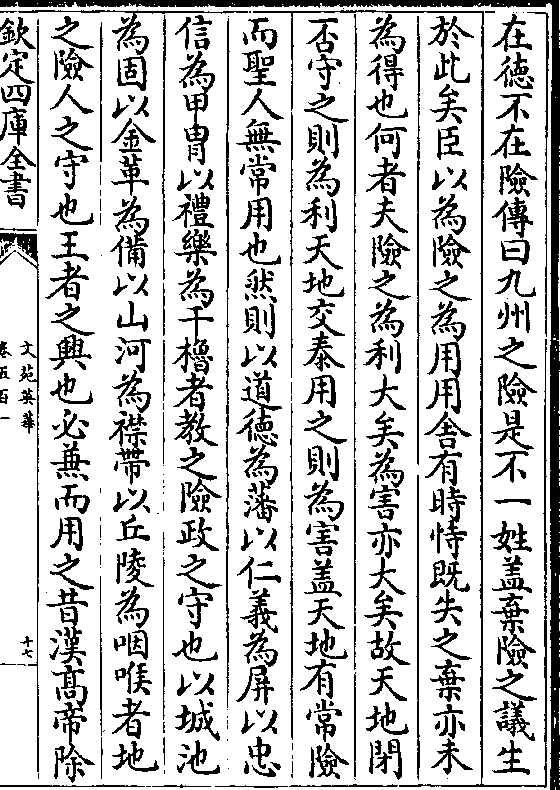 在德不在險傳曰九州之險是不一姓蓋棄險之議生
於此矣臣以為險之為用用舍有時恃既失之棄亦未
為得也何者夫險之為利大矣為害亦大矣故天地閉
否守之則為利天地交泰用之則為害蓋天地有常險
而聖人無常用也然則以道德為藩以仁義為屏以忠
信為甲胄以禮樂為干櫓者教之險政之守也以城池
為固以金革為備以山河為襟帶以丘陵為咽喉者地
之險人之守也王者之興也必兼而用之昔漢髙帝除
欽定四庫全書
文苑英華
卷五百一
十七